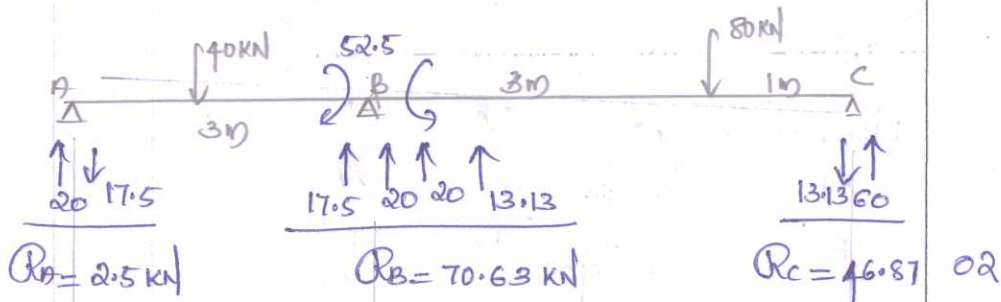 40KN 52.5 80KN
A B 3m 1m C
3m
20 17.5 17.5 20 20 13.13 13.13 60
RA = 2.5 KN RB = 70.63 KN RC = 46.87 02